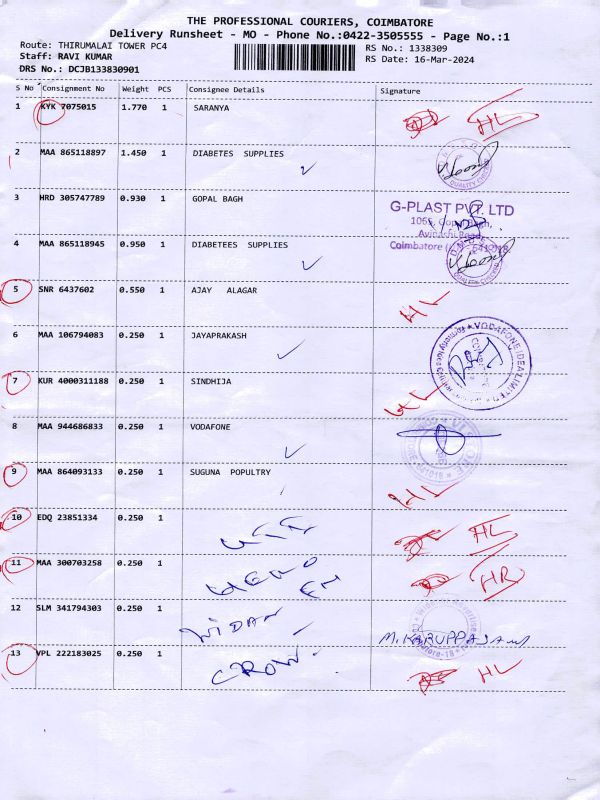 THE PROFESSIONAL COURIERS, COIMBATORE
Delivery Runsheet - MO - Phone No.:0422-3505555 - Page No.:1
Route: THIRUMALAI TOWER PC4 RS No.: 1338309
Staff: RAVI KUMAR RS Date: 16-Mar-2024
DRS No.: DCJB133830901
S No Consignment No Weight PCS Consignee Details Signature
1 KYK 7075015 1.770 1 SARANYA HL
2 MAA 865118897 1.450 1 DIABETES SUPPLIES
QUALITY
3 HRD 305747789 0.930 1 GOPAL BAGH
G-PLAST PVT. LTD
Avinashi Road,
Coimbatore
4 MAA 865118945 0.950 1 DIABETEES SUPPLIES
5 SNR 6437602 0.550 1 AJAY ALAGAR HL
6 MAA 106794083 0.250 1 JAYAPRAKASH
VODAFONE IDEA LIMITED
7 KUR 4000311188 0.250 1 SINDHIJA HL
8 MAA 944686833 0.250 1 VODAFONE
9 MAA 864093133 0.250 1 SUGUNA POPULTRY HL
10 EDQ 23851334 0.250 1 HL
11 MAA 300703258 0.250 1 HR
12 SLM 341794303 0.250 1
13 VPL 222183025 0.250 1 CROW. HL